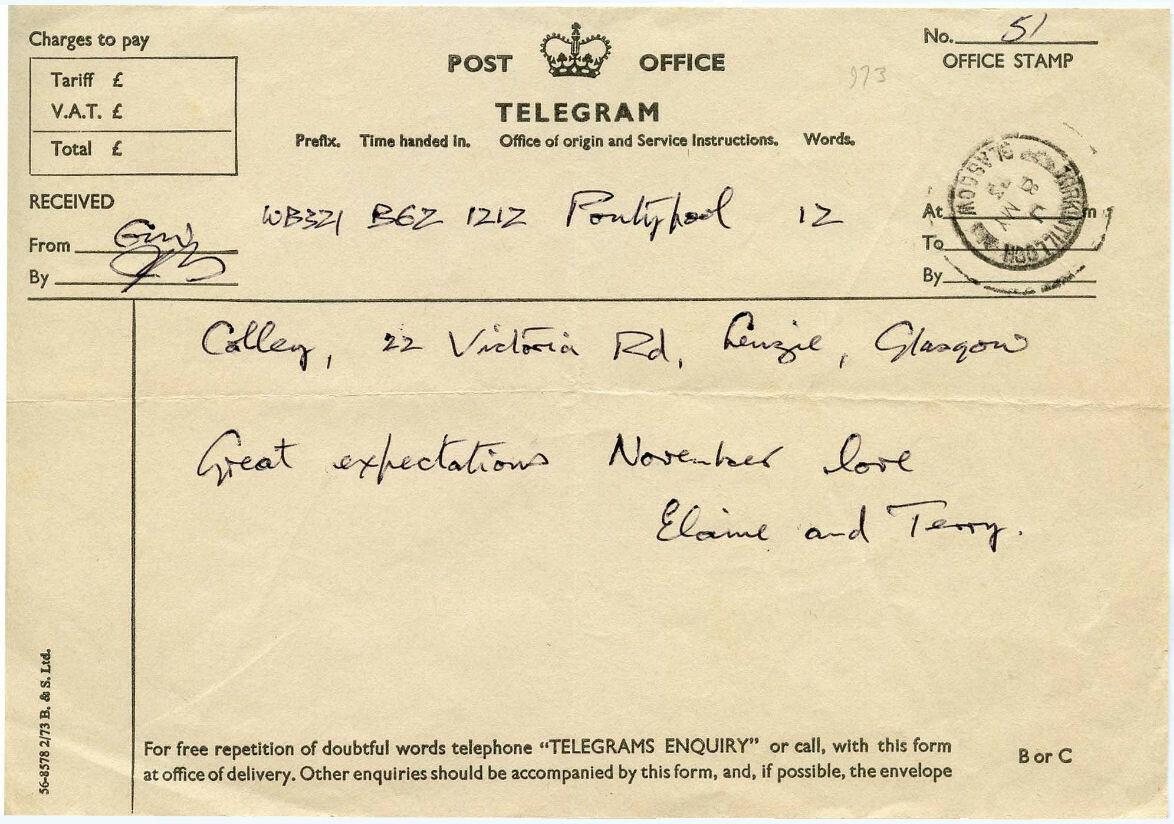 Charges to pay
Tariff £
V.A.T. £
Total £
POST OFFICE
TELEGRAM
Prefix. Time handed in. Office of origin and Service Instructions. Words.
No. 51
OFFICE STAMP
973
RECEIVED
From
By
WB321 B62 1212 Pontypool 12
At m
To
By
KIRKINTILLOCH
GLASGOW
Colley, 22 Victoria Rd, Lenzie, Glasgow
Great expectations November love
Elaine and Terry.
56-8578 2/73 B. & S. Ltd.
For free repetition of doubtful words telephone “TELEGRAMS ENQUIRY” or call, with this form
at office of delivery. Other enquiries should be accompanied by this form, and, if possible, the envelope
B or C